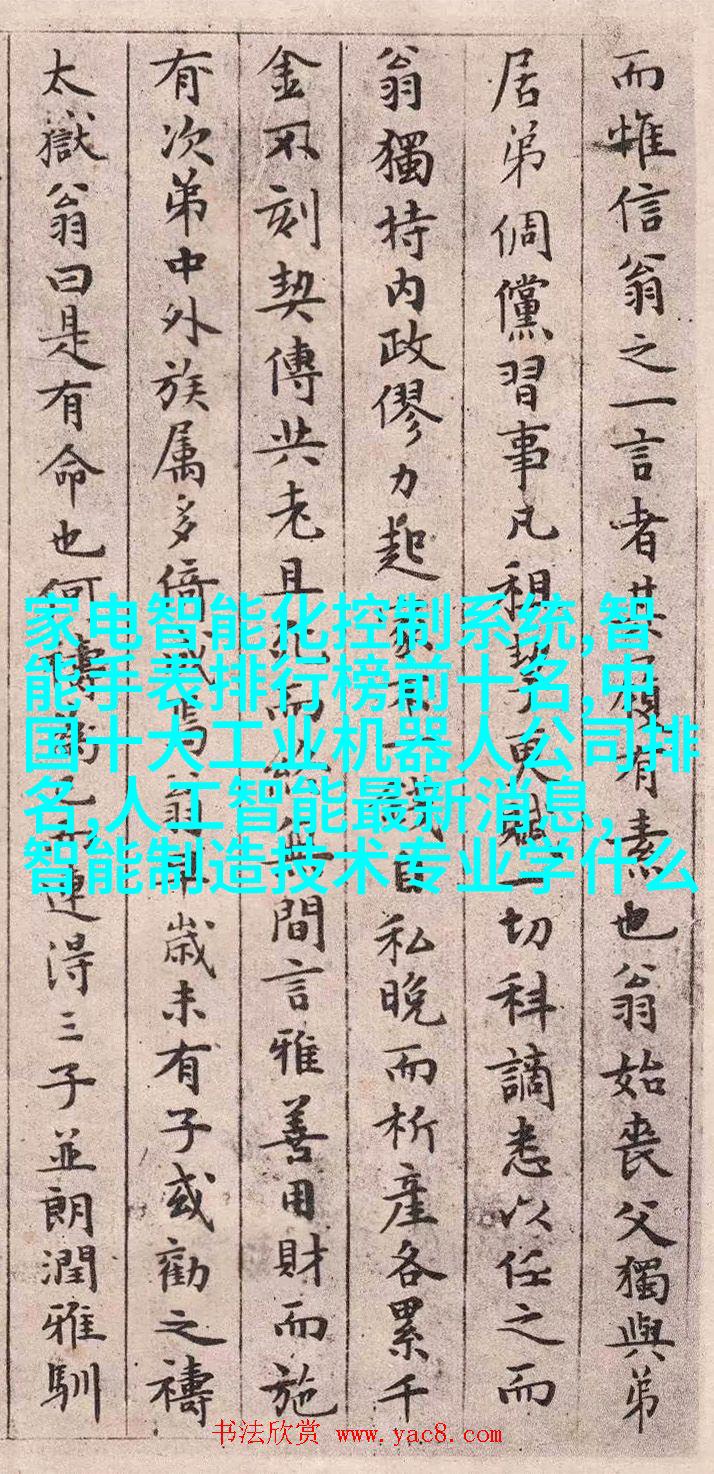 而惟信翁之一言者其有素也翁始喪父獨與弟
居弟倜儻習事凡租更一切科謫悉以任之而
翁獨持内政僇力起家不一錢自私晚而析產各累千
金不刻契傳共老且死而終無間言雅善用財而施
有次弟中外族属多倚焉翁歲未有子或勸之禱
太嶽翁曰是有命也何禱為已而連淂三子並朗潤雅馴
家电智能化控制系统,智
能手表排行榜前十名,中
国十大工业机器人公司排
名,人工智能最新消息,
智能制造技术专业学什么
书法欣赏 www.yac8.com